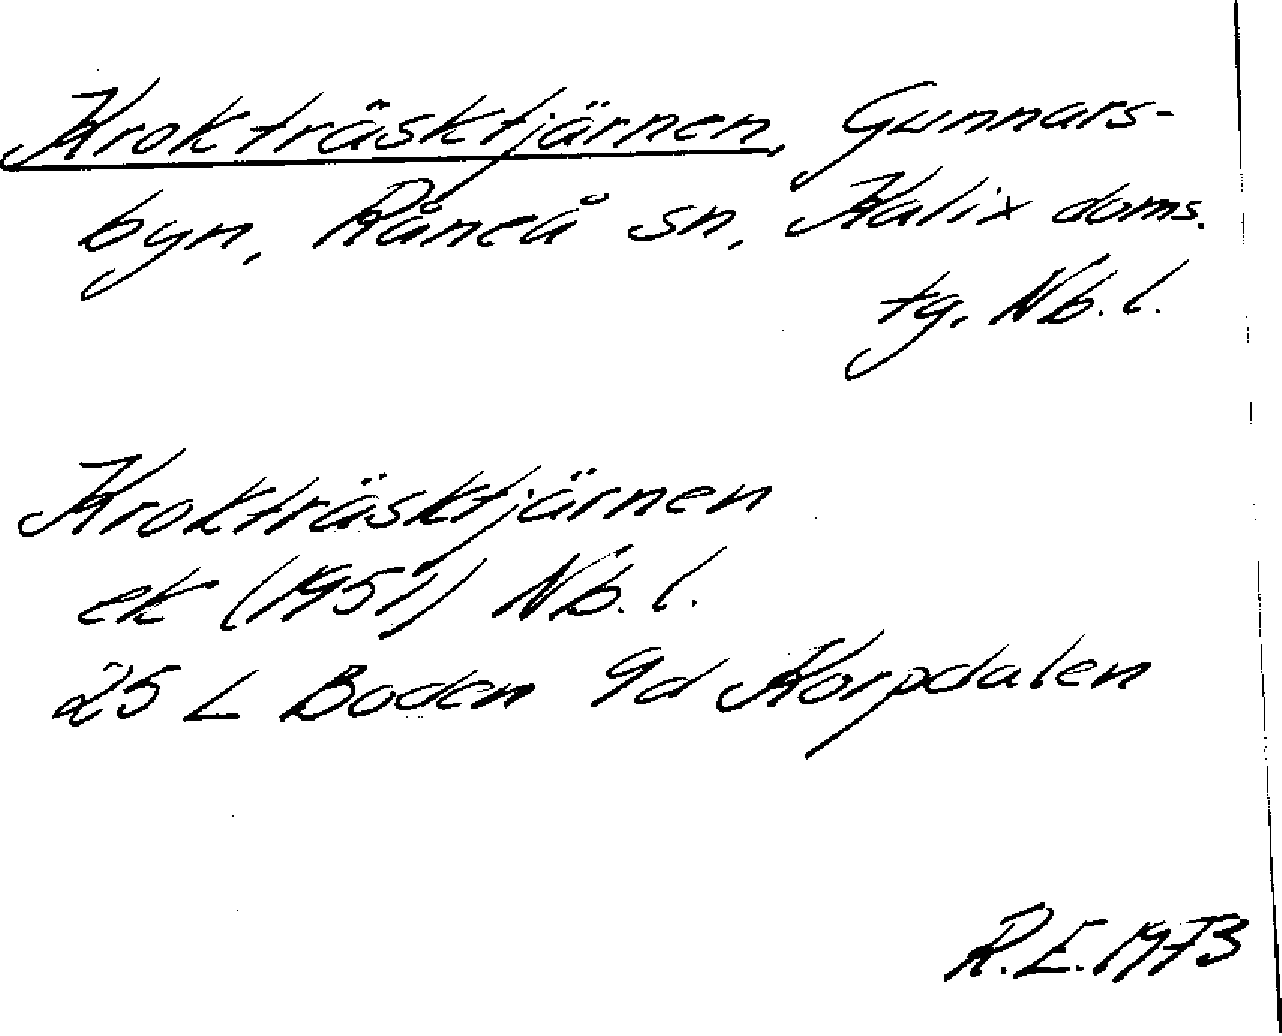 Krokträsktjärnen, Gunnars-
byn, Råneå sn, Kalix doms.
tg, Nb. l.
Krokträsktjärnen
ek (1951) Nb. l.
25 L Boden 9d Korpdalen
R.E. 1973